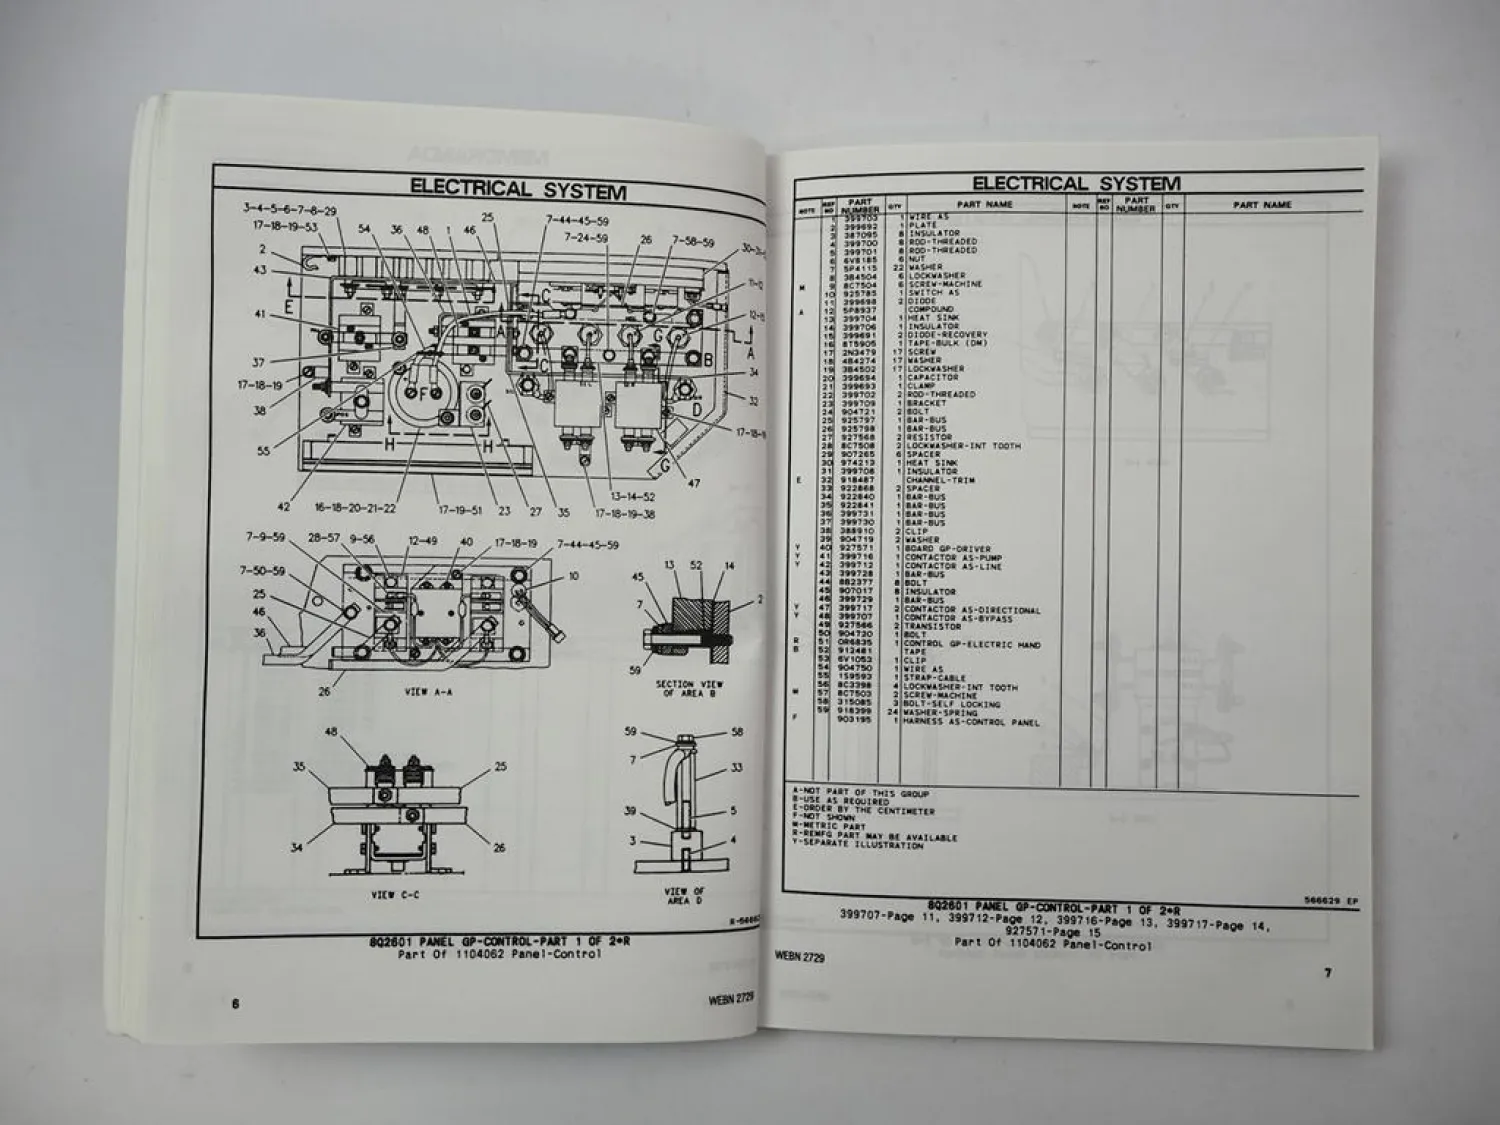 ELECTRICAL SYSTEM
3-4-5-6-7-8-29
17-18-19-53
2
43
E
41
37
17-18-19
38
55
54
36
48
1
46
25
7-44-45-59
7-24-59
26
7-58-59
A
B
34
32
D
C
C
C
F
H
H
G
47
42
16-18-20-21-22
17-19-51
23
27
35
13-14-52
17-18-19-38
7-9-59
28-57
9-56
12-49
40
17-18-19
7-44-45-59
7-50-59
10
25
46
36
26
VIEW A-A
13
52
14
45
7
2
59
SECTION VIEW
OF AREA B
48
35
25
34
26
VIEW C-C
59
58
7
33
39
5
3
4
VIEW OF
AREA D
8Q2601 PANEL GP-CONTROL-PART 1 OF 2*R
Part Of 1104062 Panel-Control
6
WEBN 2729
ELECTRICAL SYSTEM
NOTE REF NO PART NUMBER QTY PART NAME NOTE REF NO PART NUMBER QTY PART NAME
1 399703 1 WIRE AS
2 399692 1 PLATE
3 387095 8 INSULATOR
4 399700 8 ROD-THREADED
5 399701 8 ROD-THREADED
6 6V8185 6 NUT
7 5P4115 22 WASHER
8 3B4504 6 LOCKWASHER
M 9 8C7504 6 SCREW-MACHINE
10 925785 1 SWITCH AS
11 399698 2 DIODE
A 12 5P8937 COMPOUND
13 399704 1 HEAT SINK
14 399706 1 INSULATOR
15 399691 2 DIODE-RECOVERY
16 8T5905 1 TAPE-BULK (DM)
17 2N3479 17 SCREW
18 4B4274 17 WASHER
19 3B4502 17 LOCKWASHER
20 399694 1 CAPACITOR
21 399693 1 CLAMP
22 399702 2 ROD-THREADED
23 399709 1 BRACKET
24 904721 2 BOLT
25 925797 1 BAR-BUS
26 925798 1 BAR-BUS
27 927568 2 RESISTOR
28 8C7508 2 LOCKWASHER-INT TOOTH
29 907265 6 SPACER
30 974213 1 HEAT SINK
31 399708 1 INSULATOR
E 32 918487 CHANNEL-TRIM
33 922868 2 SPACER
34 922840 1 BAR-BUS
35 922841 1 BAR-BUS
36 399731 1 BAR-BUS
37 399730 1 BAR-BUS
38 388910 2 CLIP
39 904719 2 WASHER
Y 40 927571 1 BOARD GP-DRIVER
Y 41 399716 1 CONTACTOR AS-PUMP
Y 42 399712 1 CONTACTOR AS-LINE
43 399728 1 BAR-BUS
44 8B2377 8 BOLT
45 907017 8 INSULATOR
46 399729 1 BAR-BUS
Y 47 399717 2 CONTACTOR AS-DIRECTIONAL
Y 48 399707 1 CONTACTOR AS-BYPASS
49 927566 2 TRANSISTOR
50 904720 1 BOLT
R 51 0R6835 1 CONTROL GP-ELECTRIC HAND
B 52 912481 TAPE
53 6V1053 1 CLIP
54 904750 1 WIRE AS
55 1S9593 1 STRAP-CABLE
56 8C3398 4 LOCKWASHER-INT TOOTH
M 57 8C7503 2 SCREW-MACHINE
58 315085 3 BOLT-SELF LOCKING
59 918399 24 WASHER-SPRING
F 903195 1 HARNESS AS-CONTROL PANEL
A-NOT PART OF THIS GROUP
B-USE AS REQUIRED
E-ORDER BY THE CENTIMETER
F-NOT SHOWN
M-METRIC PART
R-REMFG PART MAY BE AVAILABLE
Y-SEPARATE ILLUSTRATION
566629 EP
8Q2601 PANEL GP-CONTROL-PART 1 OF 2*R
399707-Page 11, 399712-Page 12, 399716-Page 13, 399717-Page 14,
927571-Page 15
Part Of 1104062 Panel-Control
WEBN 2729
7